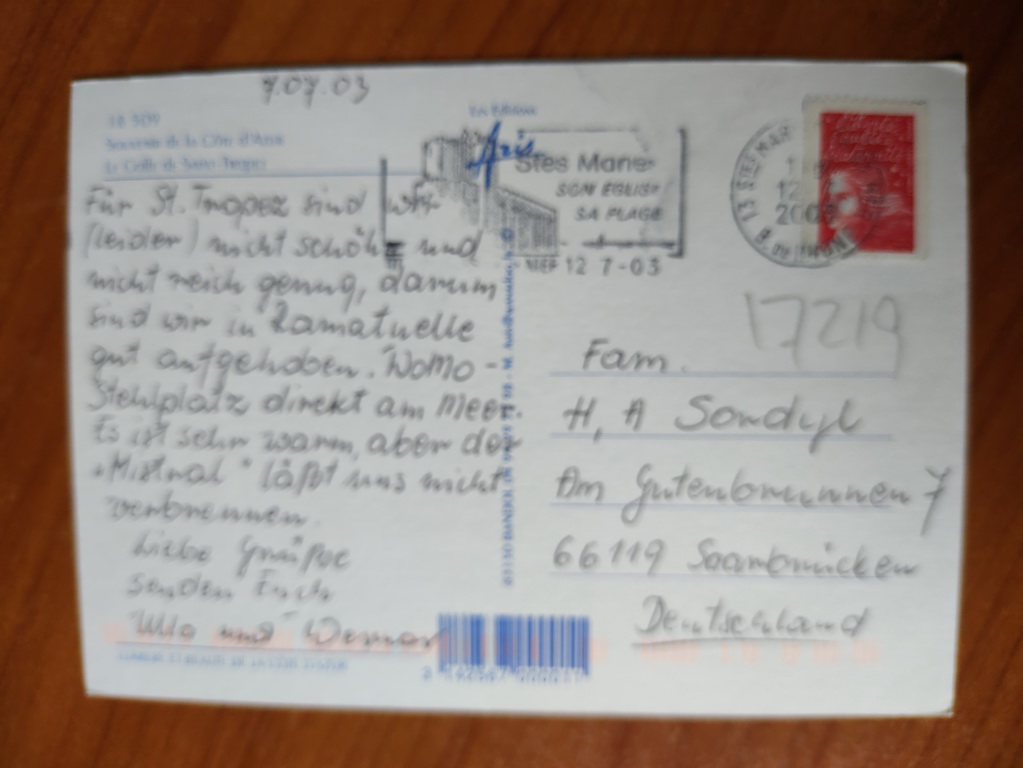 7.07.03
18 509
Souvenir de la Côte d'Azur
Le Golfe de Saint-Tropez
Für St. Tropez sind wir
(leider) nicht schön und
nicht reich genug, darum
sind wir in Ramatuelle
gut aufgehoben. WoMo-
Stehlplatz direkt am Meer.
Es ist sehr warm, aber der
"Mistral" läßt uns nicht
verbrennen.
Liebe Grüße
senden Euch
Ulla und Werner
Stes Maries
SON EGLISE
SA PLAGE
12 7-03
13 STES MAR
17219
Fam.
H, A Sondyl
Am Gutenbrunnen 7
66119 Saarbrücken
Deutschland